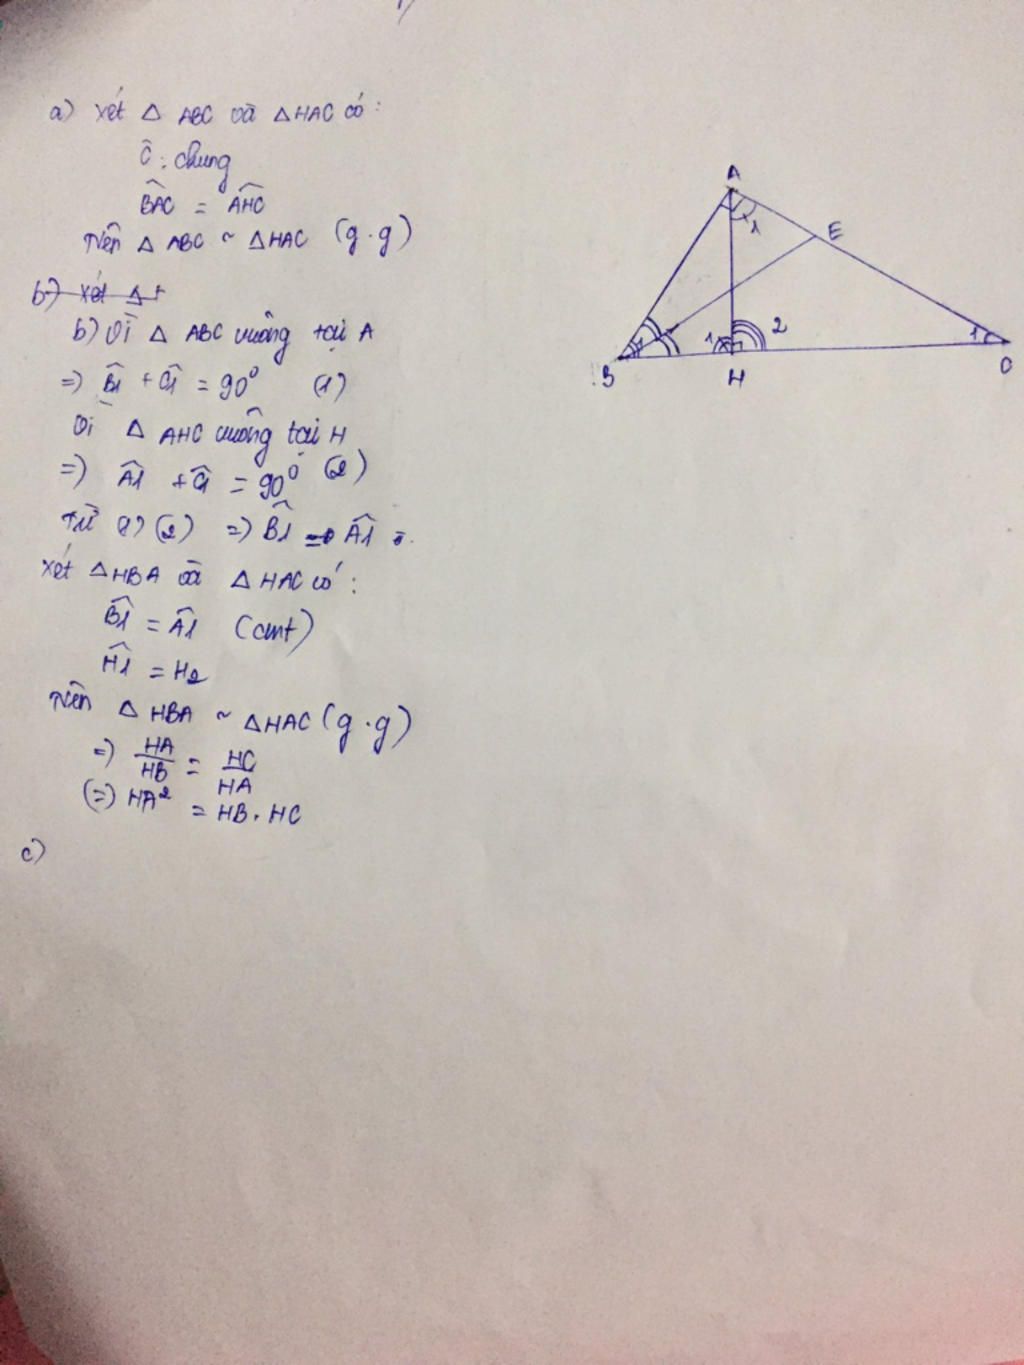 a) Xét △ ABC và △HAC có :
Ĉ : chung
BAC^ = AHC^
Nên △ ABC ~ △HAC (g.g)
b) Xét △
b) Vì △ ABC vuông tại A
=> B̂1 + Ĉ1 = 90⁰ (1)
Vì △ AHC vuông tại H
=> Â1 + Ĉ1 = 90⁰ (2)
Từ (1) (2) => B̂1 = Â1
Xét △HBA và △ HAC có :
B̂1 = Â1 (cmt)
Ĥ1 = H2
Nên △ HBA ~ △HAC (g.g)
=> HA/HB = HC/HA
(=) HA² = HB . HC
c)
A
1
E
1 2 1
B H C